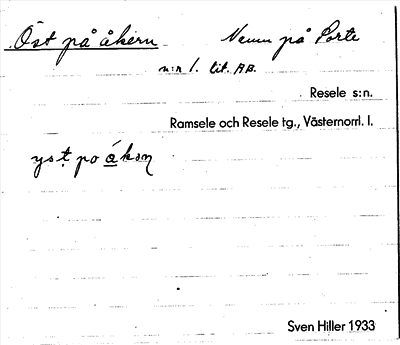 Öst på åkern Namn på Porte
n:r 1. lit. AB.
Resele s:n.
Ramsele och Resele tg., Västernorrl. l.
Sven Hiller 1933